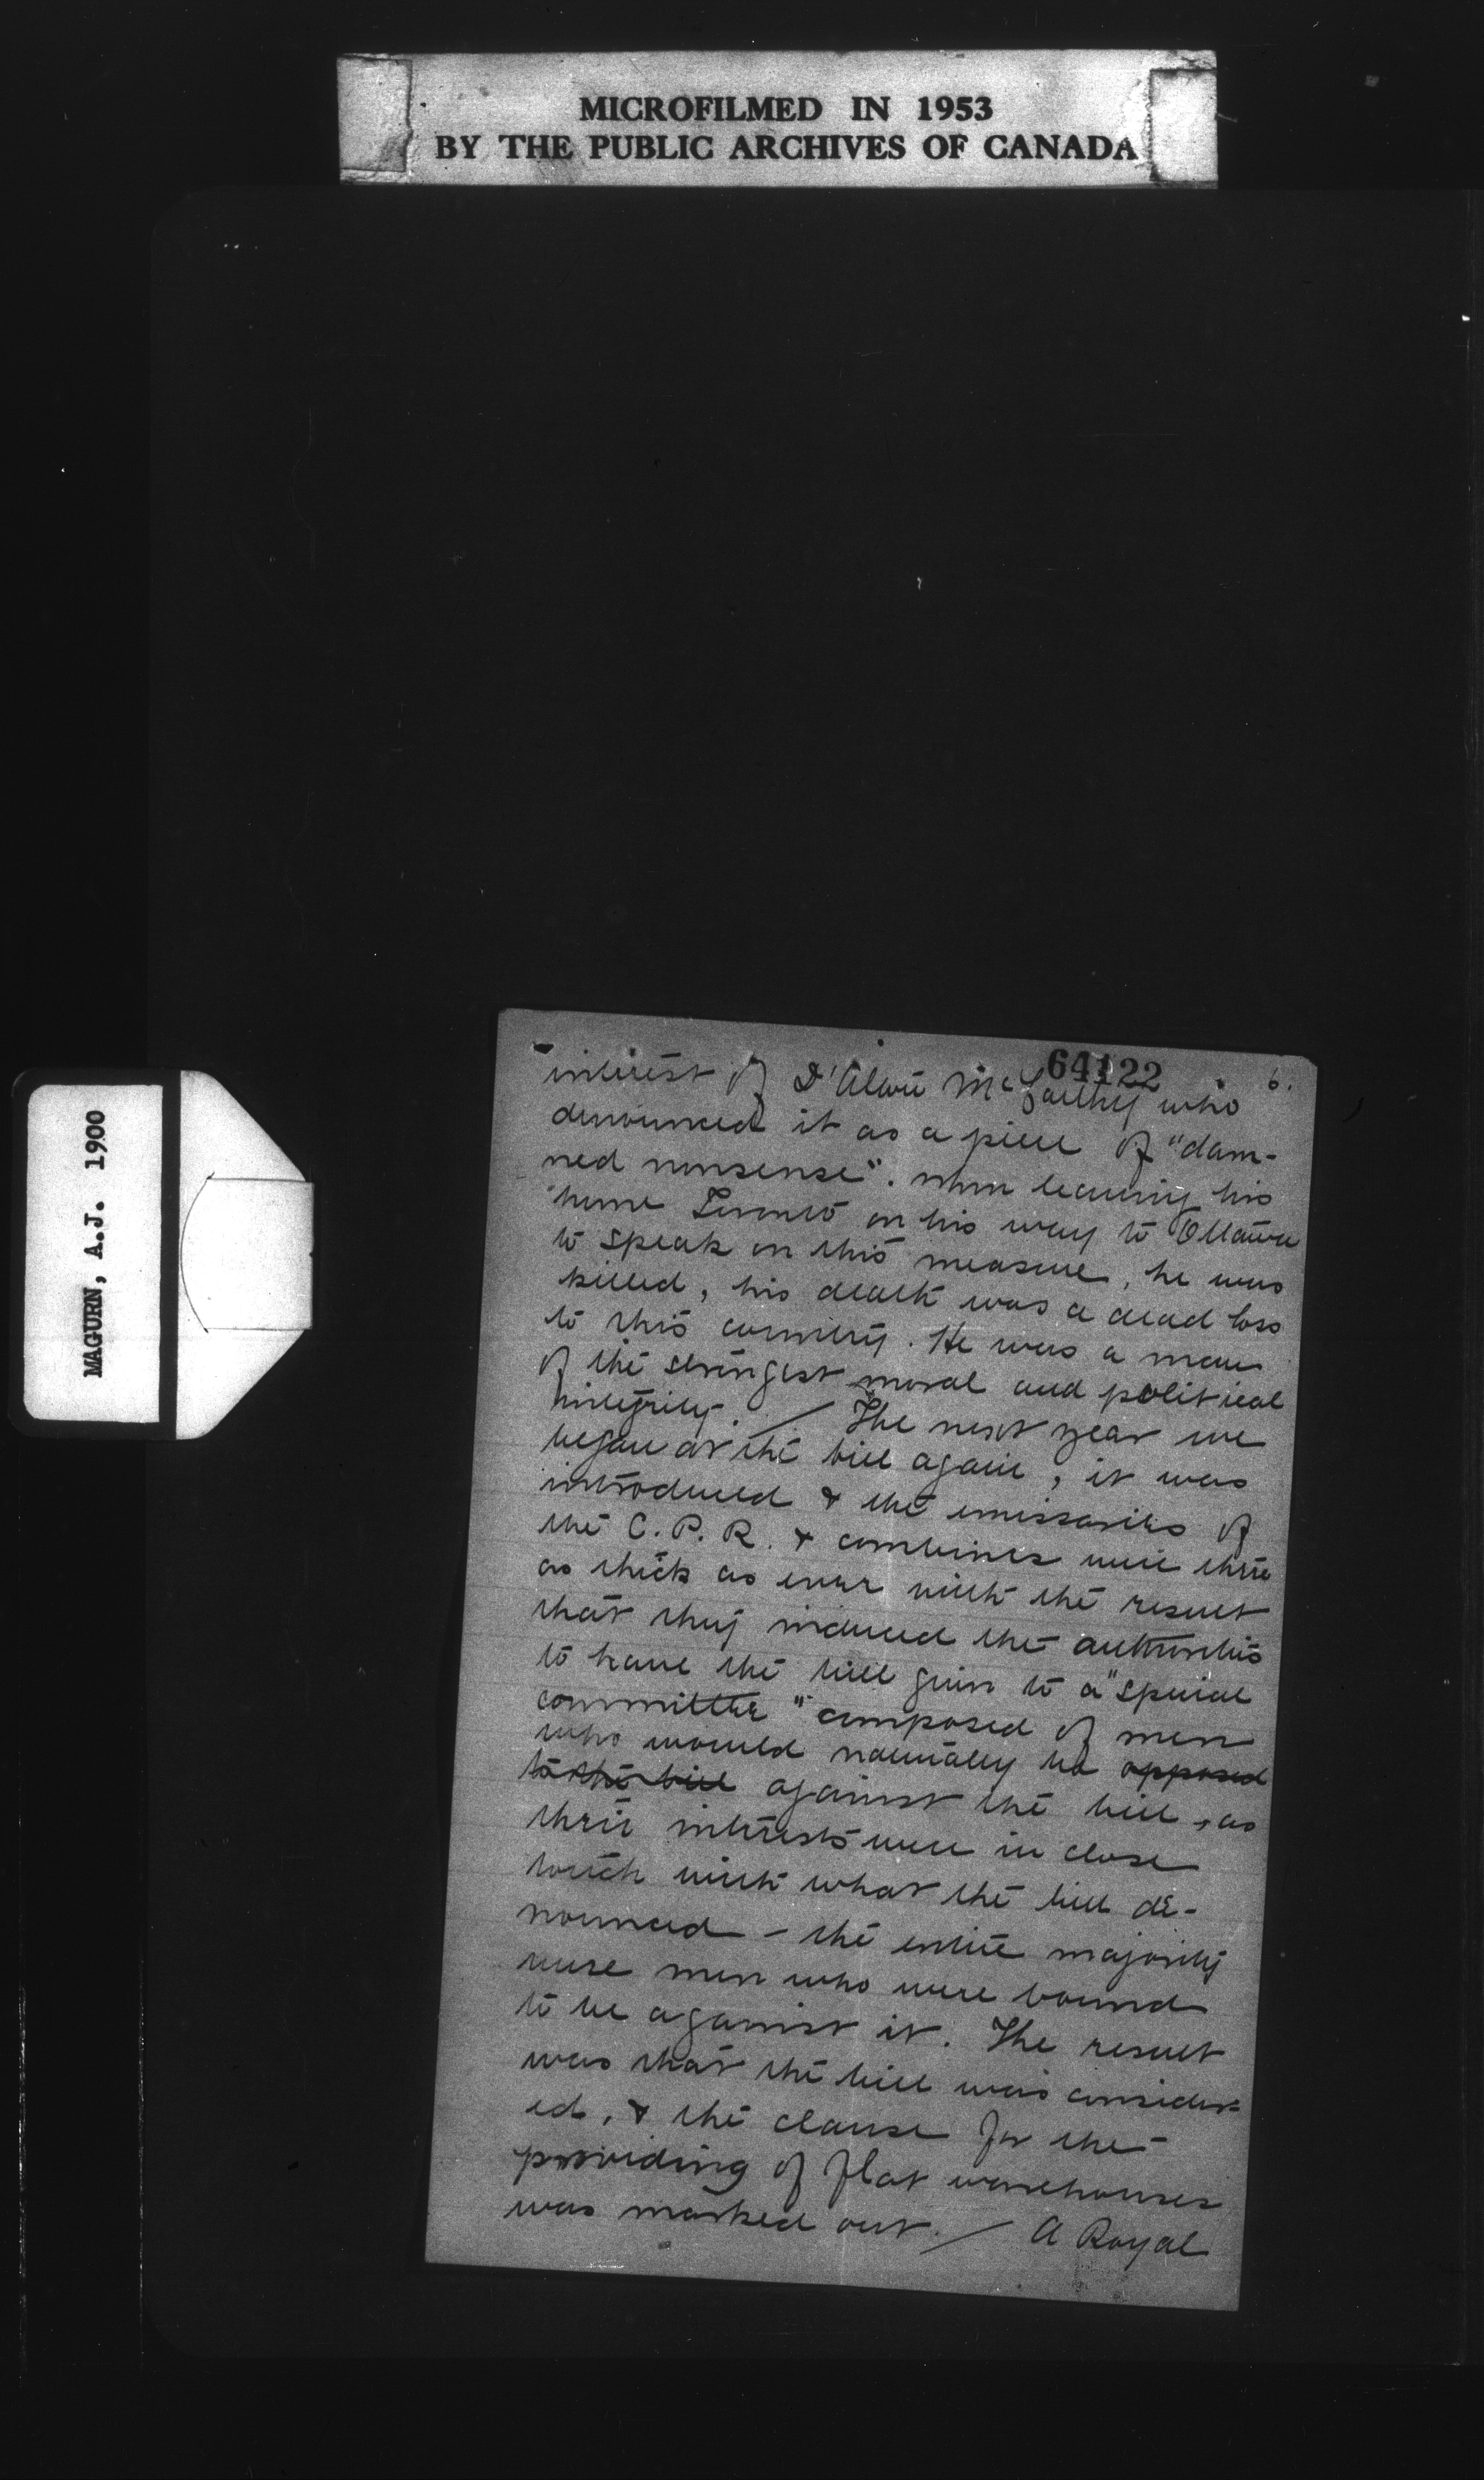 MICROFILMED IN 1953
BY THE PUBLIC ARCHIVES OF CANADA
MAGURN, A.J. 1900
64122
6.
interest of D'Alton McCarthy who
denounced it as a piece of "dam-
ned nonsense". When leaving his
home Toronto on his way to Ottawa
to speak on this measure, he was
killed, his death was a dead loss
to this country. He was a man
of the strongest moral and political
integrity. / The next year we
began at the bill again, it was
introduced & the emissaries of
the C.P.R. & combines were there
as thick as ever with the result
that they induced the authorities
to have the bill given to a "special
committee" composed of men
who would naturally be opposed
to the bill against the bill, as
their interests were in close
touch with what the bill de-
nounced - the entire majority
were men who were bound
to be against it. The result
was that the bill was consider-
ed, & the clause for the
providing of flat warehouses
was marked out. / A Royal